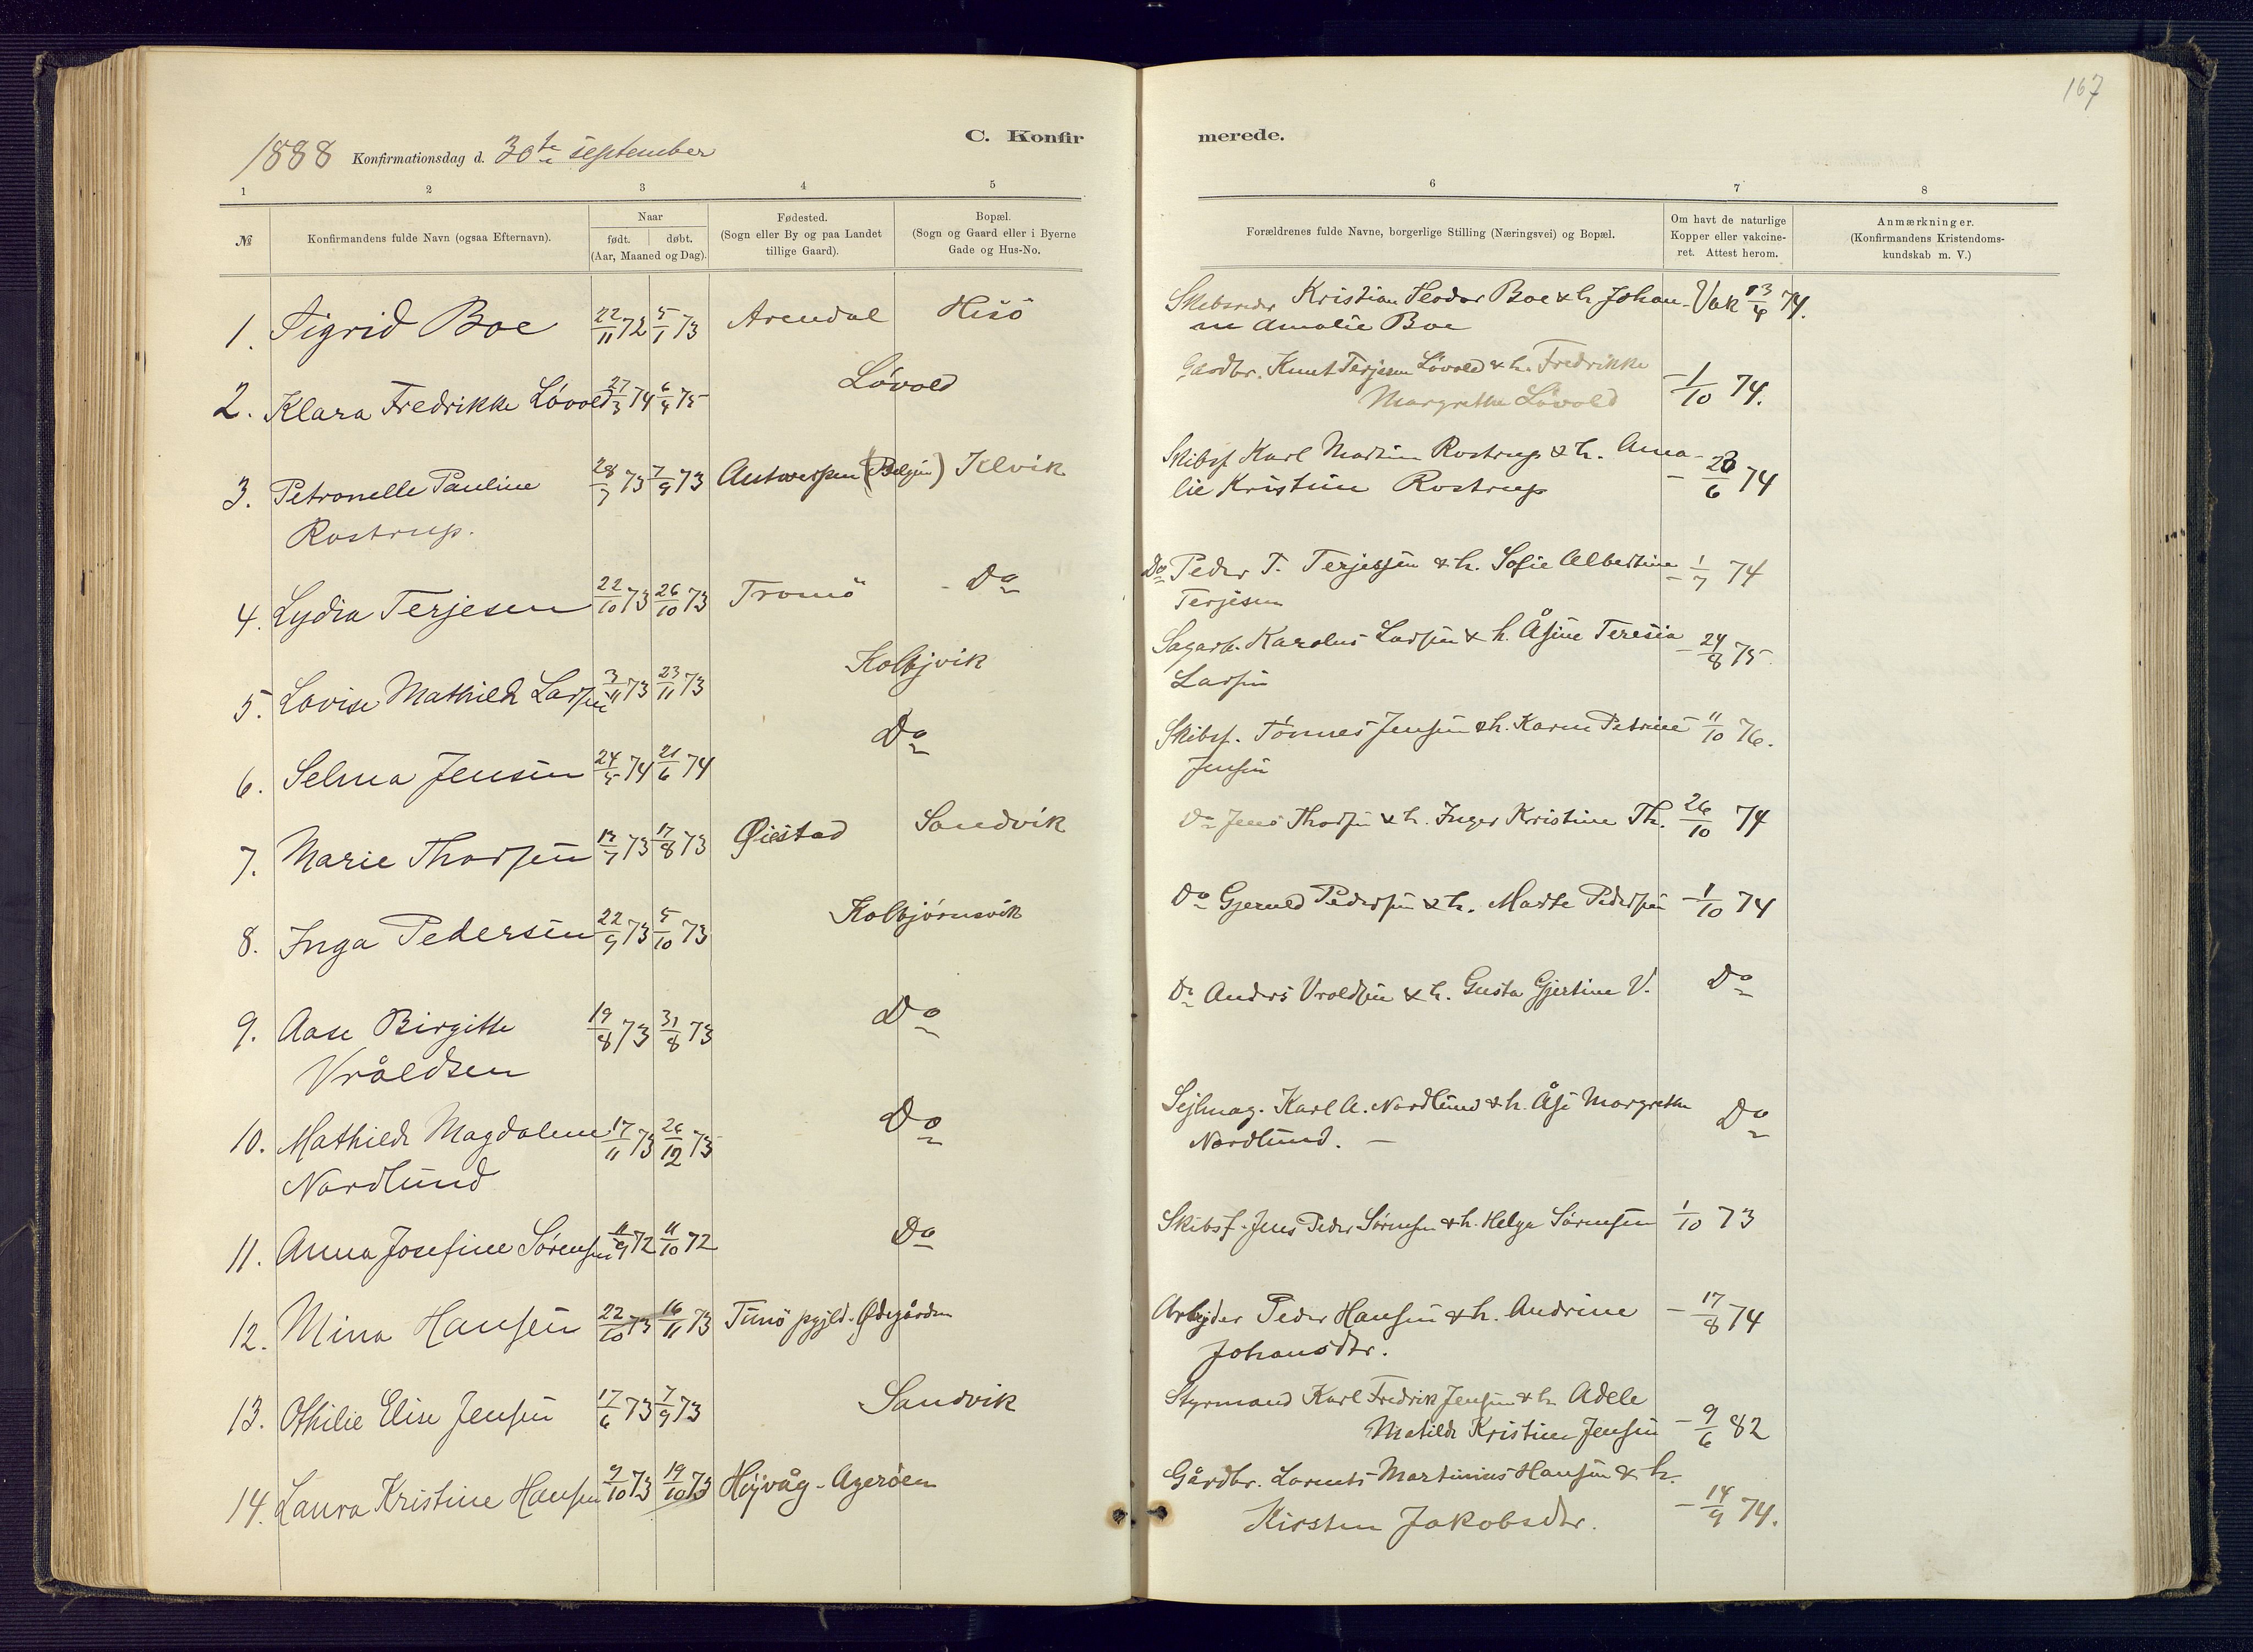 167
C. Konfir
merede.
1888 Konfirmationsdag d. 30te september
1 2 3 4 5
6 7 8
№ Konfirmandens fulde Navn (ogsaa Efternavn). Naar født. døbt. (Aar, Maaned og Dag). Fødested. (Sogn eller By og paa Landet tillige Gaard). Bopæl. (Sogn og Gaard eller i Byerne Gade og Hus-No.
Forældrenes fulde Navne, borgerlige Stilling (Næringsvei) og Bopæl. Om havt de naturlige Kopper eller vakcineret. Attest herom. Anmærkninger. (Konfirmandens Kristendomskundskab m. V.)
1. Sigrid Boe 22/11 72 5/1 73 Arendal Hisö Skibsreder Kristian Teodor Boe & h. Johan- Vak 13/6 74.
ne Amalie Boe
2. Klara Fredrikke Lövold 27/3 74 6/4 75 Lövold Gardbr. Knut Terjesen Lövold & h. Fredrikke - 1/10 74.
Margrethe Lövold
3. Petronelle Pauline 28/7 73 7/9 73 Antwerpen (Belgien) Kilvik Skibsf. Karl Martin Rostrup & h. Ama- - 28/6 74
Rostrup. lie Kristine Rostrup
4. Lydia Terjesen 22/10 73 26/10 73 Tromö Do Do Peder T. Terjessen & h. Sofie Albertine - 1/7 74
Terjesen
5. Lovise Mathilde Larsen 3/11 73 23/11 73 Kolbjvik Sagarb. Karolus Larsen & h. Åsine Teresia - 24/8 75.
Larsen
6. Selma Jensen 24/5 74 21/6 74 Do Skibsf. Tönnes Jensen & h. Karen Petrine 11/10 76.
Jensen
7. Marie Thorsen 13/7 73 17/8 73 Øiestad Sandvik Do Jens Thorsen & h. Inger Kristine Th. 26/10 74
8. Inga Pedersen 22/9 73 5/10 73 Kolbjörnsvik Do Gjeruld Pedersen & h. Marte Pedersen - 1/10 74
9. Aase Birgitte 19/8 73 31/8 73 Do Do Anders Vroldsen & h. Gusta Gjertine V. Do
Vråldsen
10. Mathilde Magdalene 17/11 73 26/12 73 Do Sejlmag. Karl A. Nordlund & h. Åse Margrethe Do
Nordlund Nordlund. -
11. Anna Josefine Sörensen 11/9 72 11/10 72 Do Skibsf. Jens Peder Sörensen & h. Helga Sörensen 1/10 73
12. Mina Hansen 22/10 73 16/11 73 Ödegården Arbejder Peder Hansen & h. Andrine - 17/8 74
Johansdtr.
13. Othilie Elise Jensen 17/6 73 7/9 73 Sandvik Styrmand Karl Fredrik Jensen & h. Adele
Matilde Kristine Jensen - 9/6 82
14. Laura Kristine Hansen 9/10 73 19/10 73 Høivåg - Agerøen Gårdbr. Lorents Martinius Hansen & h.
Kirsten Jakobsdtr. - 14/9 74.